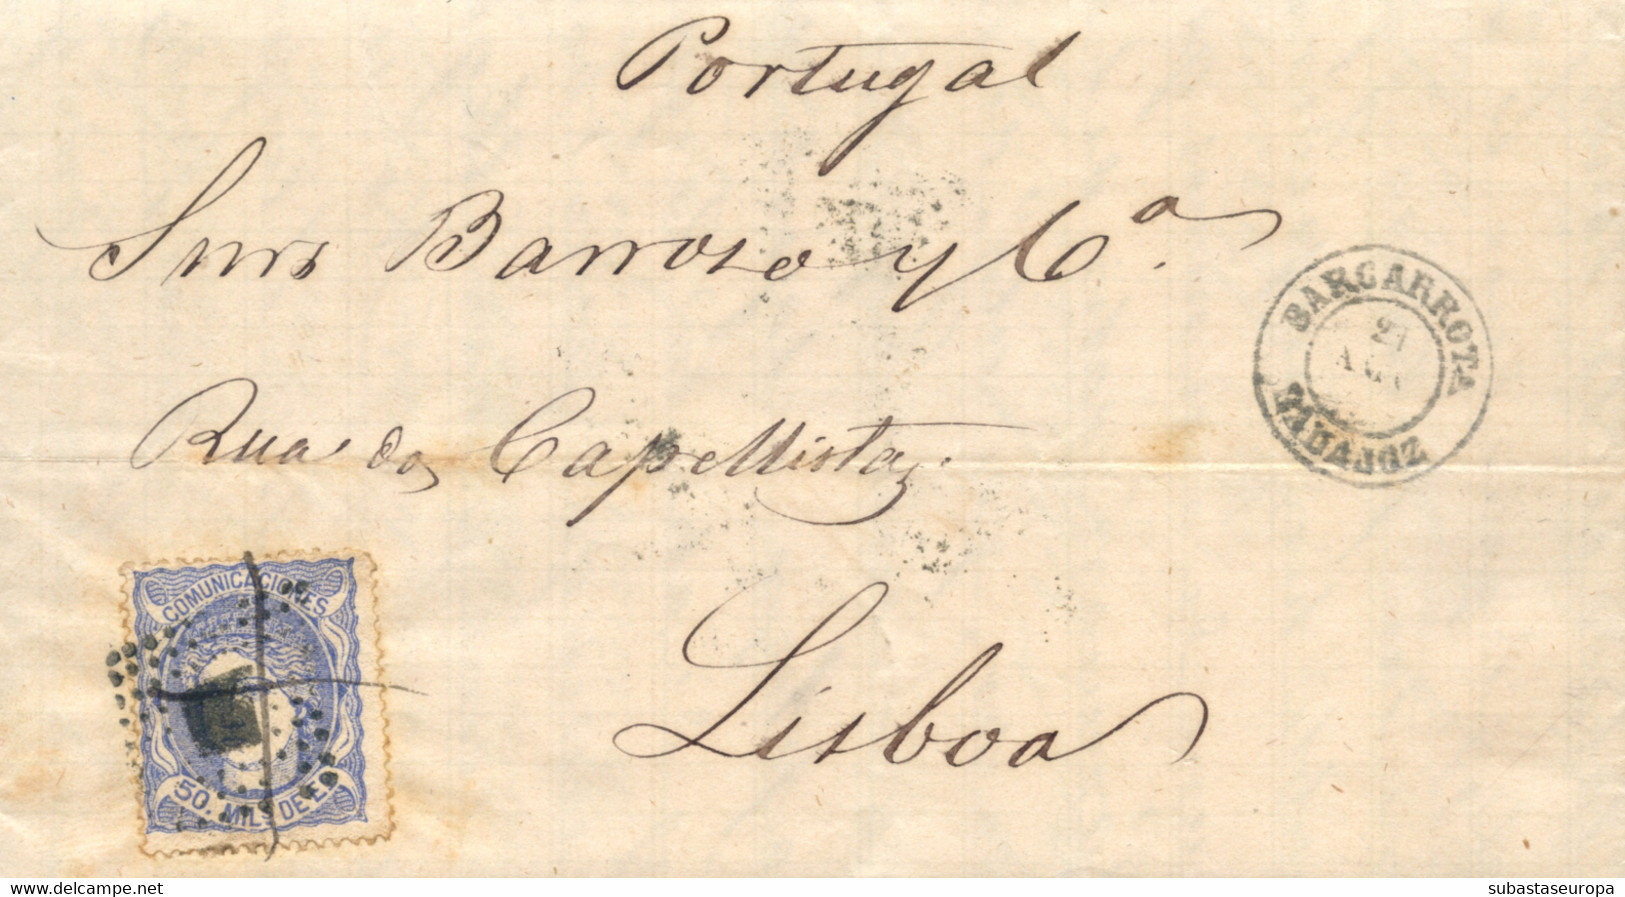 Portugal
Snrs Barroso y Cª.
BARCARROTA
BADAJOZ
Rua dos Capellistas.
Lisboa
COMUNICACIONES
50. MILS DE E
www.delcampe.net
subastaseuropa